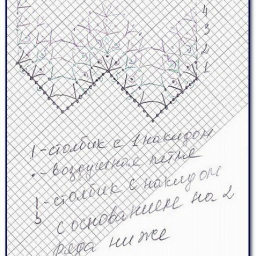 4
3
2
1
| - столбик с 1 накидом
• - воздушные петли
столбик с накидом
с основанием на 2
ряда ниже